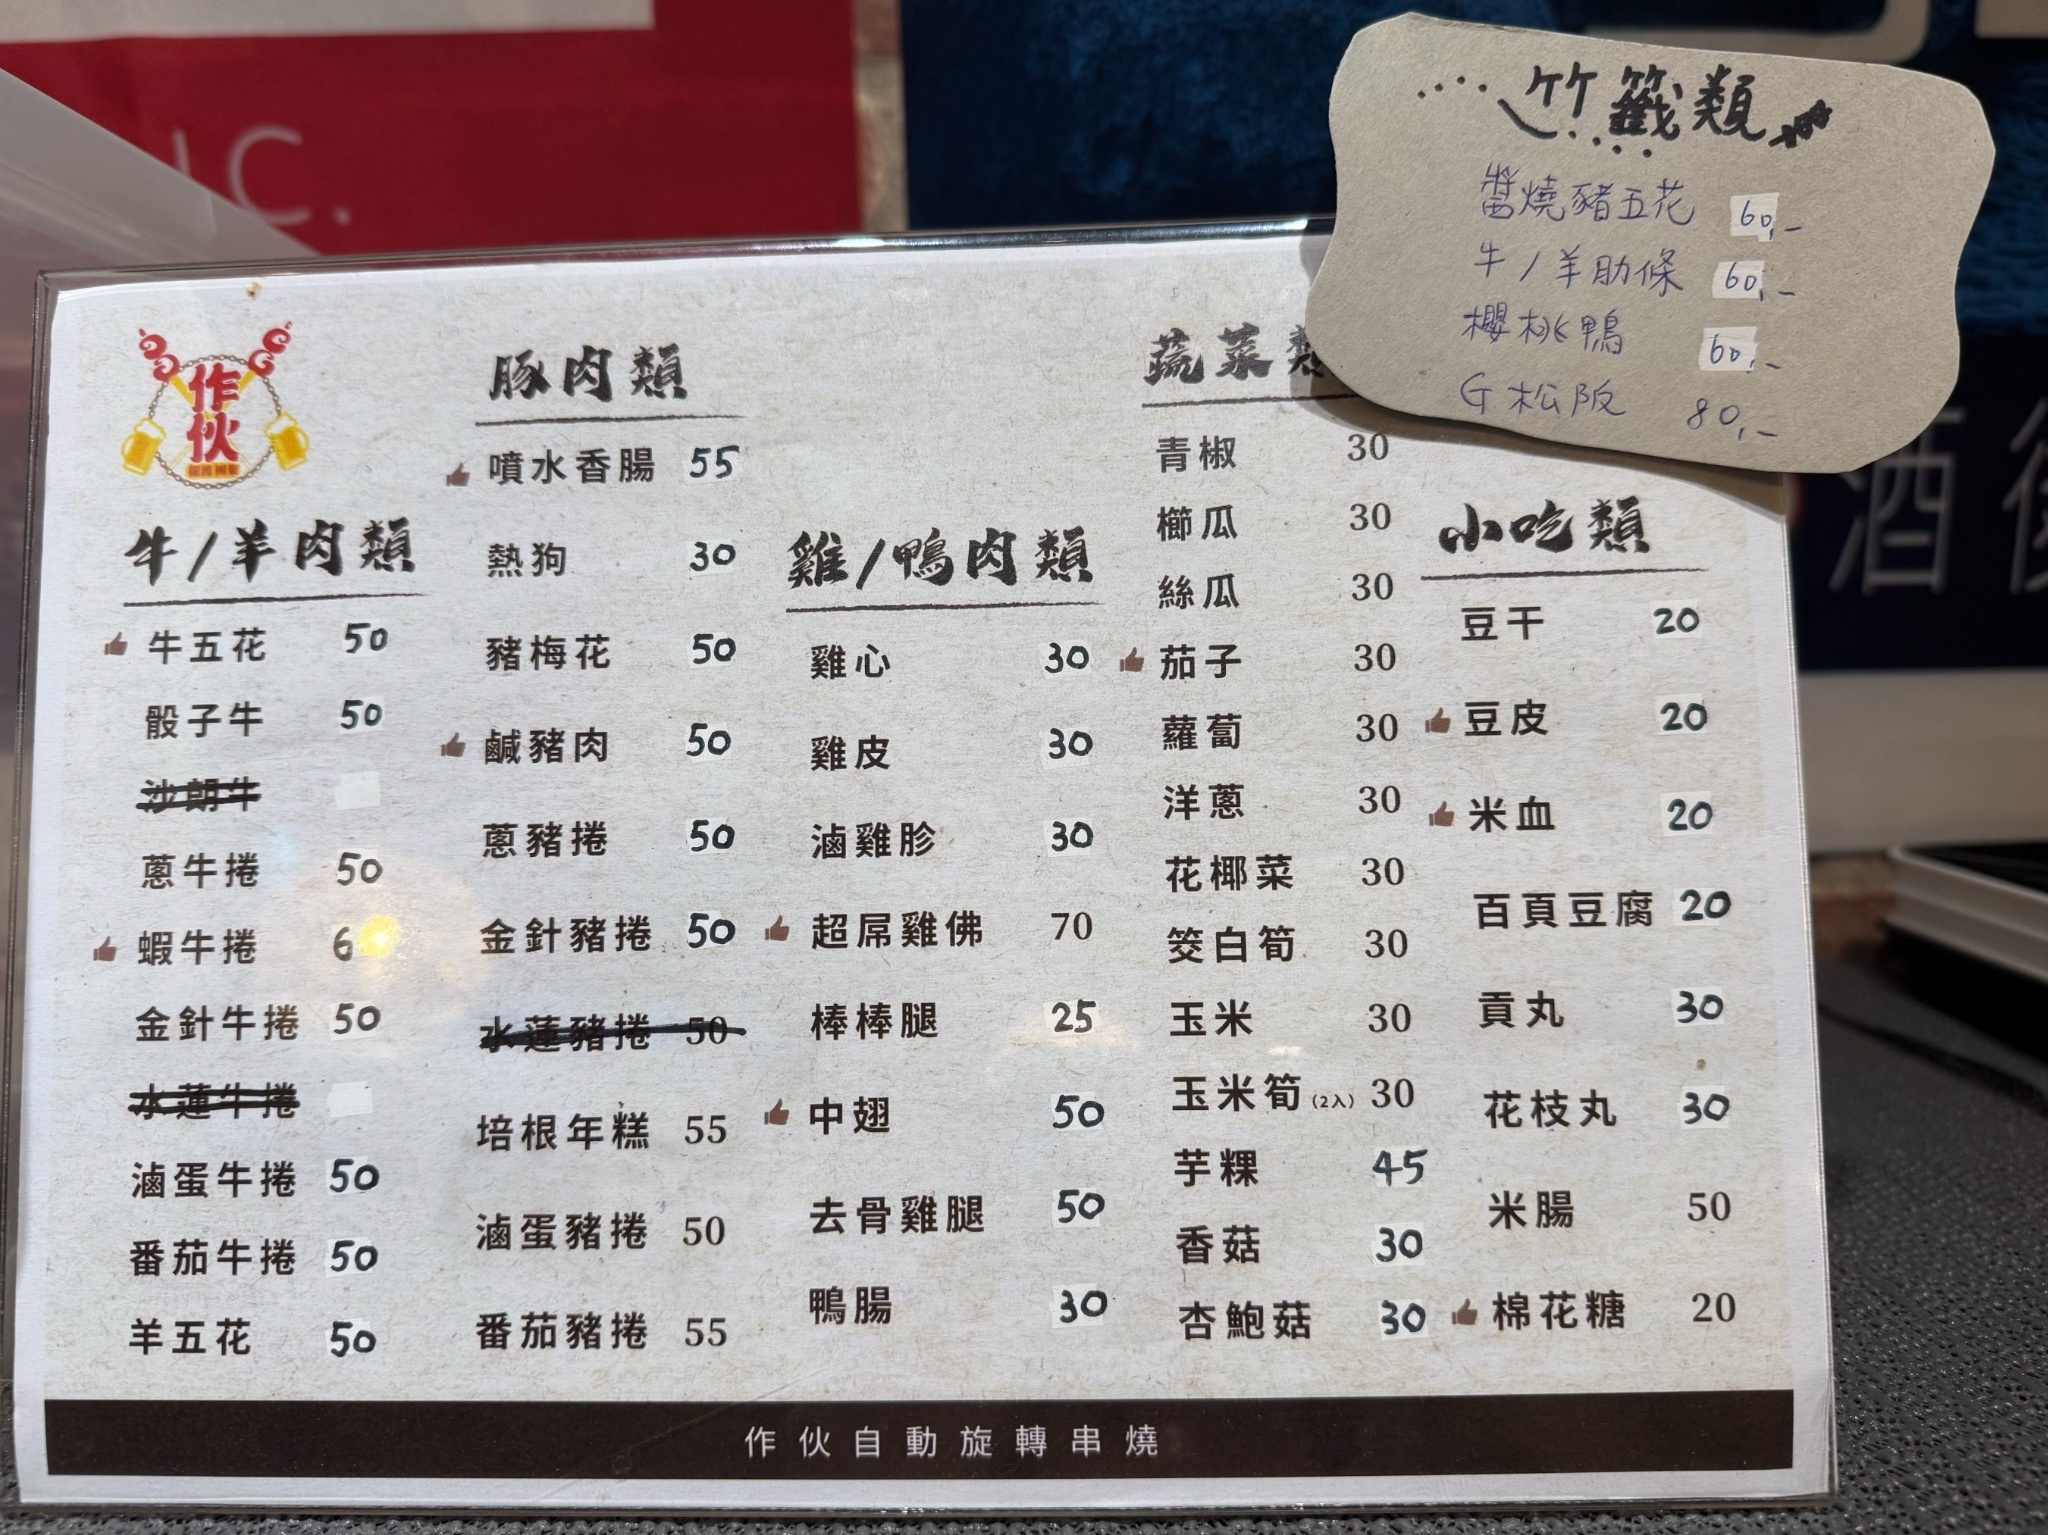 I.C.
竹籤類
醬燒豬五花 60,-
牛/羊肋條 60,-
櫻桃鴨 60,-
G松阪 80,-
酒
作伙
牛/羊肉類
牛五花 50
骰子牛 50
沙朗牛
蔥牛捲 50
蝦牛捲 6
金針牛捲 50
水蓮牛捲
滷蛋牛捲 50
番茄牛捲 50
羊五花 50
豚肉類
噴水香腸 55
熱狗 30
豬梅花 50
鹹豬肉 50
蔥豬捲 50
金針豬捲 50
水蓮豬捲 50
培根年糕 55
滷蛋豬捲 50
番茄豬捲 55
雞/鴨肉類
雞心 30
雞皮 30
滷雞胗 30
超屌雞佛 70
棒棒腿 25
中翅 50
去骨雞腿 50
鴨腸 30
蔬菜類
青椒 30
櫛瓜 30
絲瓜 30
茄子 30
蘿蔔 30
洋蔥 30
花椰菜 30
筊白筍 30
玉米 30
玉米筍(2入) 30
芋粿 45
香菇 30
杏鮑菇 30
小吃類
豆干 20
豆皮 20
米血 20
百頁豆腐 20
貢丸 30
花枝丸 30
米腸 50
棉花糖 20
作伙自動旋轉串燒